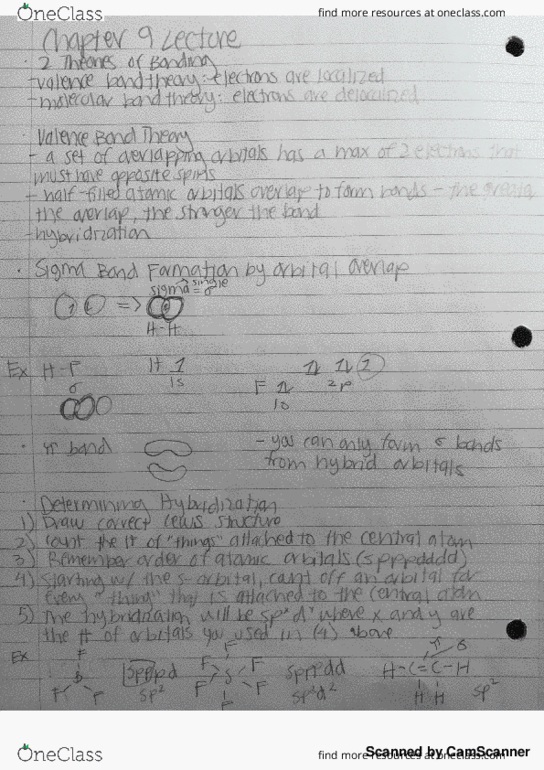 OneClass
find more resources at oneclass.com
Chapter 9 Lecture
· 2 Theories of Bonding
-valence bond theory: electrons are localized
-molecular bond theory: electrons are delocalized
· Valence Bond Theory
- a set of overlapping orbitals has a max of 2 electrons that
must have opposite spins
- half-filled atomic orbitals overlap to form bonds - the greater
the overlap, the stronger the bond
-hybridization
· Sigma Bond Formation by orbital overlap
sigma = single
=>
H-H
Ex H-F
H 1
1s
F
2p
σ
· π bond
- you can only form σ bonds
from hybrid orbitals
· Determining Hybridization
1) Draw correct Lewis structure
2) Count the # of "things" attached to the central atom
3) Remember order of atomic orbitals (spppdddd)
4) Starting w/ the s-orbital, count off an orbital for
every "thing" that is attached to the central atom
5) The hybridization will be spˣdʸ where x and y are
the # of orbitals you used in (4) above
Ex
F
B
F F
spppd
sp²
F
F F
S
F F
F
spppdd
sp³d²
π σ
H-C=C-H
H H
sp²
OneClass
find more resources at oneclass.com
Scanned by CamScanner